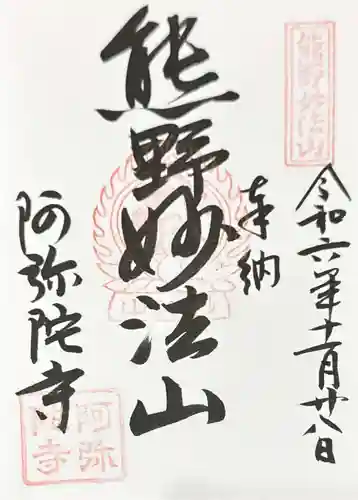 熊野妙法山
令和六年十一月廿八日
奉納
熊野妙法山
阿弥陀寺
阿弥陀寺